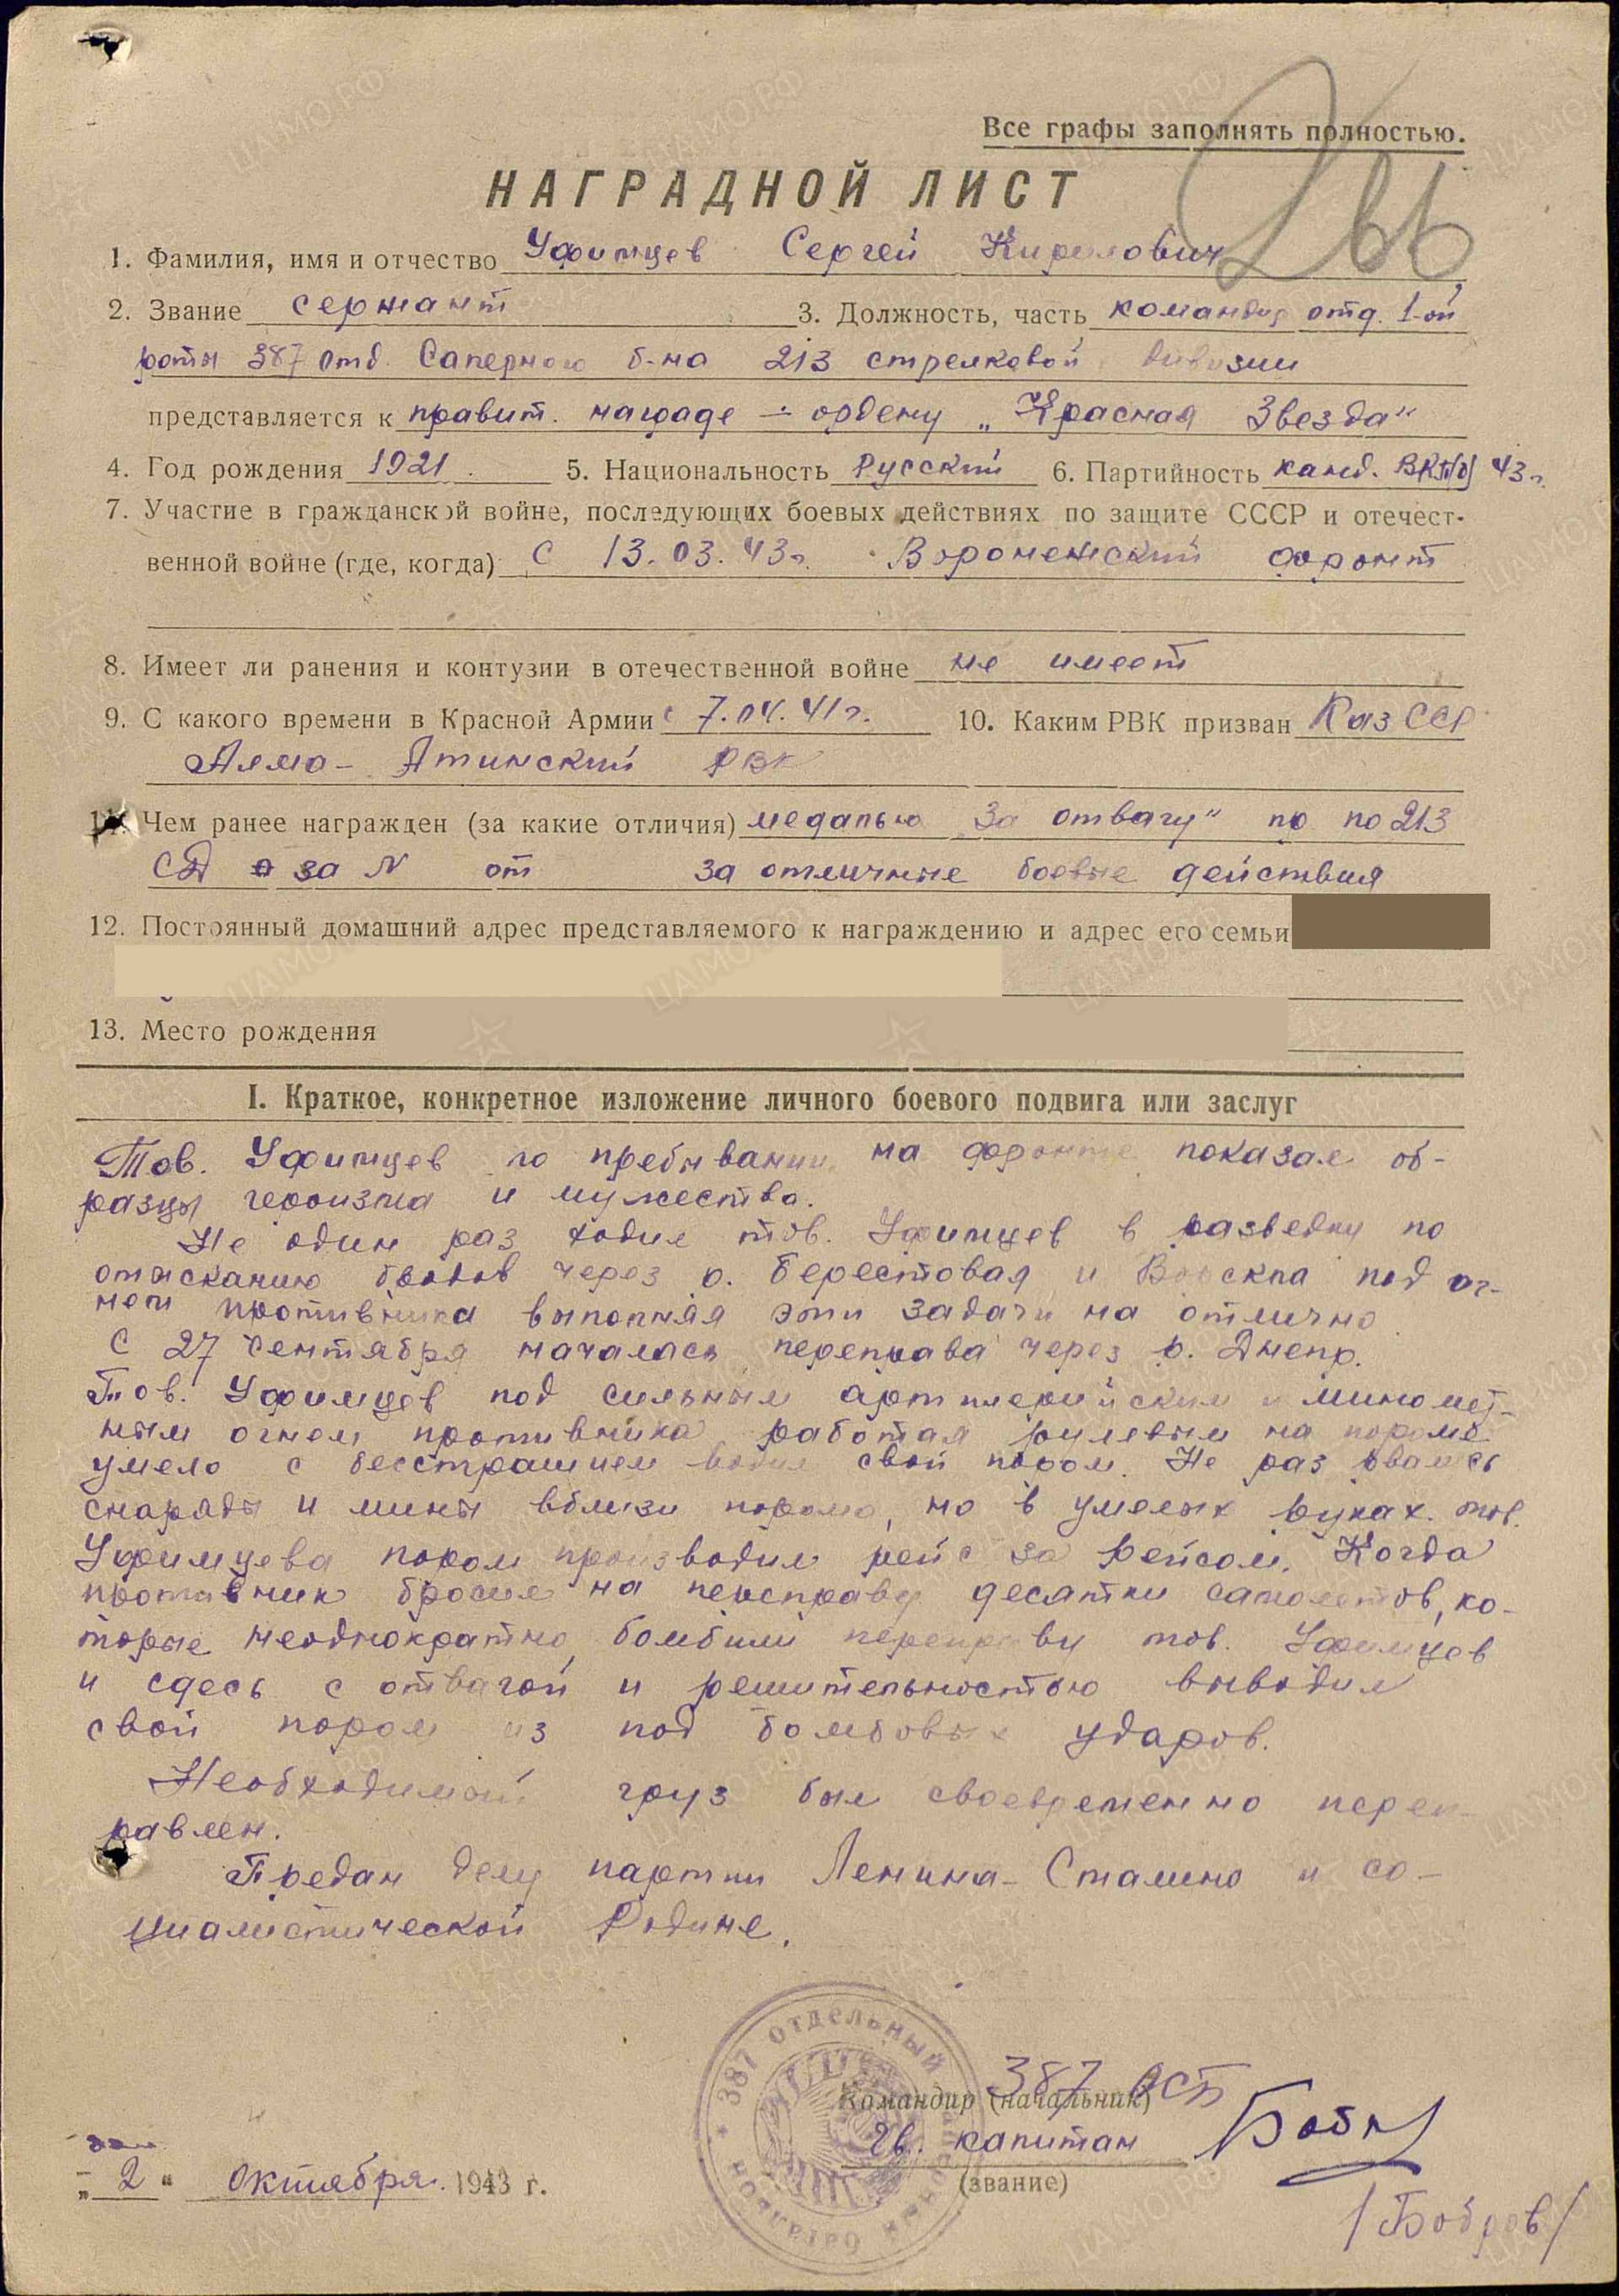 Все графы заполнять полностью.
266
НАГРАДНОЙ ЛИСТ
1. Фамилия, имя и отчество Уфимцев Сергей Кирилович
2. Звание сержант 3. Должность, часть командир отд. 1-ой
роты 387 отд. Саперного б-на 213 стрелковой дивизии
представляется к правит. награде - ордену „Красная Звезда"
4. Год рождения 1921. 5. Национальность Русский 6. Партийность канд. ВКП(б) 43 г.
7. Участие в гражданской войне, последующих боевых действиях по защите СССР и отечест-
венной войне (где, когда) С 13.03.43г. Воронежский фронт
8. Имеет ли ранения и контузии в отечественной войне не имеет
9. С какого времени в Красной Армии с 7.04.41г. 10. Каким РВК призван КазССР
Алма-Атинский РВК
11. Чем ранее награжден (за какие отличия) медалью „За отвагу" по по 213
СД за N от за отличные боевые действия
12. Постоянный домашний адрес представляемого к награждению и адрес его семьи
13. Место рождения
I. Краткое, конкретное изложение личного боевого подвига или заслуг
Тов. Уфимцев по пребывании на фронте показал об-
разцы героизма и мужества.
Не один раз ходил тов. Уфимцев в разведку по
отысканию бродов через р. Берестовая и Ворскла под ог-
нем противника выполняя эти задачи на отлично
С 27 сентября началась переправа через р. Днепр.
Тов. Уфимцев под сильным артиллерийским и миномет-
ным огнем противника работая рулевым на пароме
умело с бесстрашием водил свой паром. Не раз рвались
снаряды и мины вблизи парома, но в умелых руках тов.
Уфимцева паром производил рейс за рейсом. Когда
противник бросил на переправу десятки самолетов, ко-
торые неоднократно бомбили переправу тов. Уфимцев
и сдесь с отвагой и решительностью выводил
свой паром из под бомбовых ударов.
Необходимый груз был своевременно переп-
равлен.
Предан делу партии Ленина-Сталина и со-
циалистической Родине.
387 ОТДЕЛЬНЫЙ САПЕРНЫЙ БАТАЛЬОН
387 ОСБ
Командир (начальник)
Гв. капитан
(звание)
„2" октября 1943 г.
/Бобров/